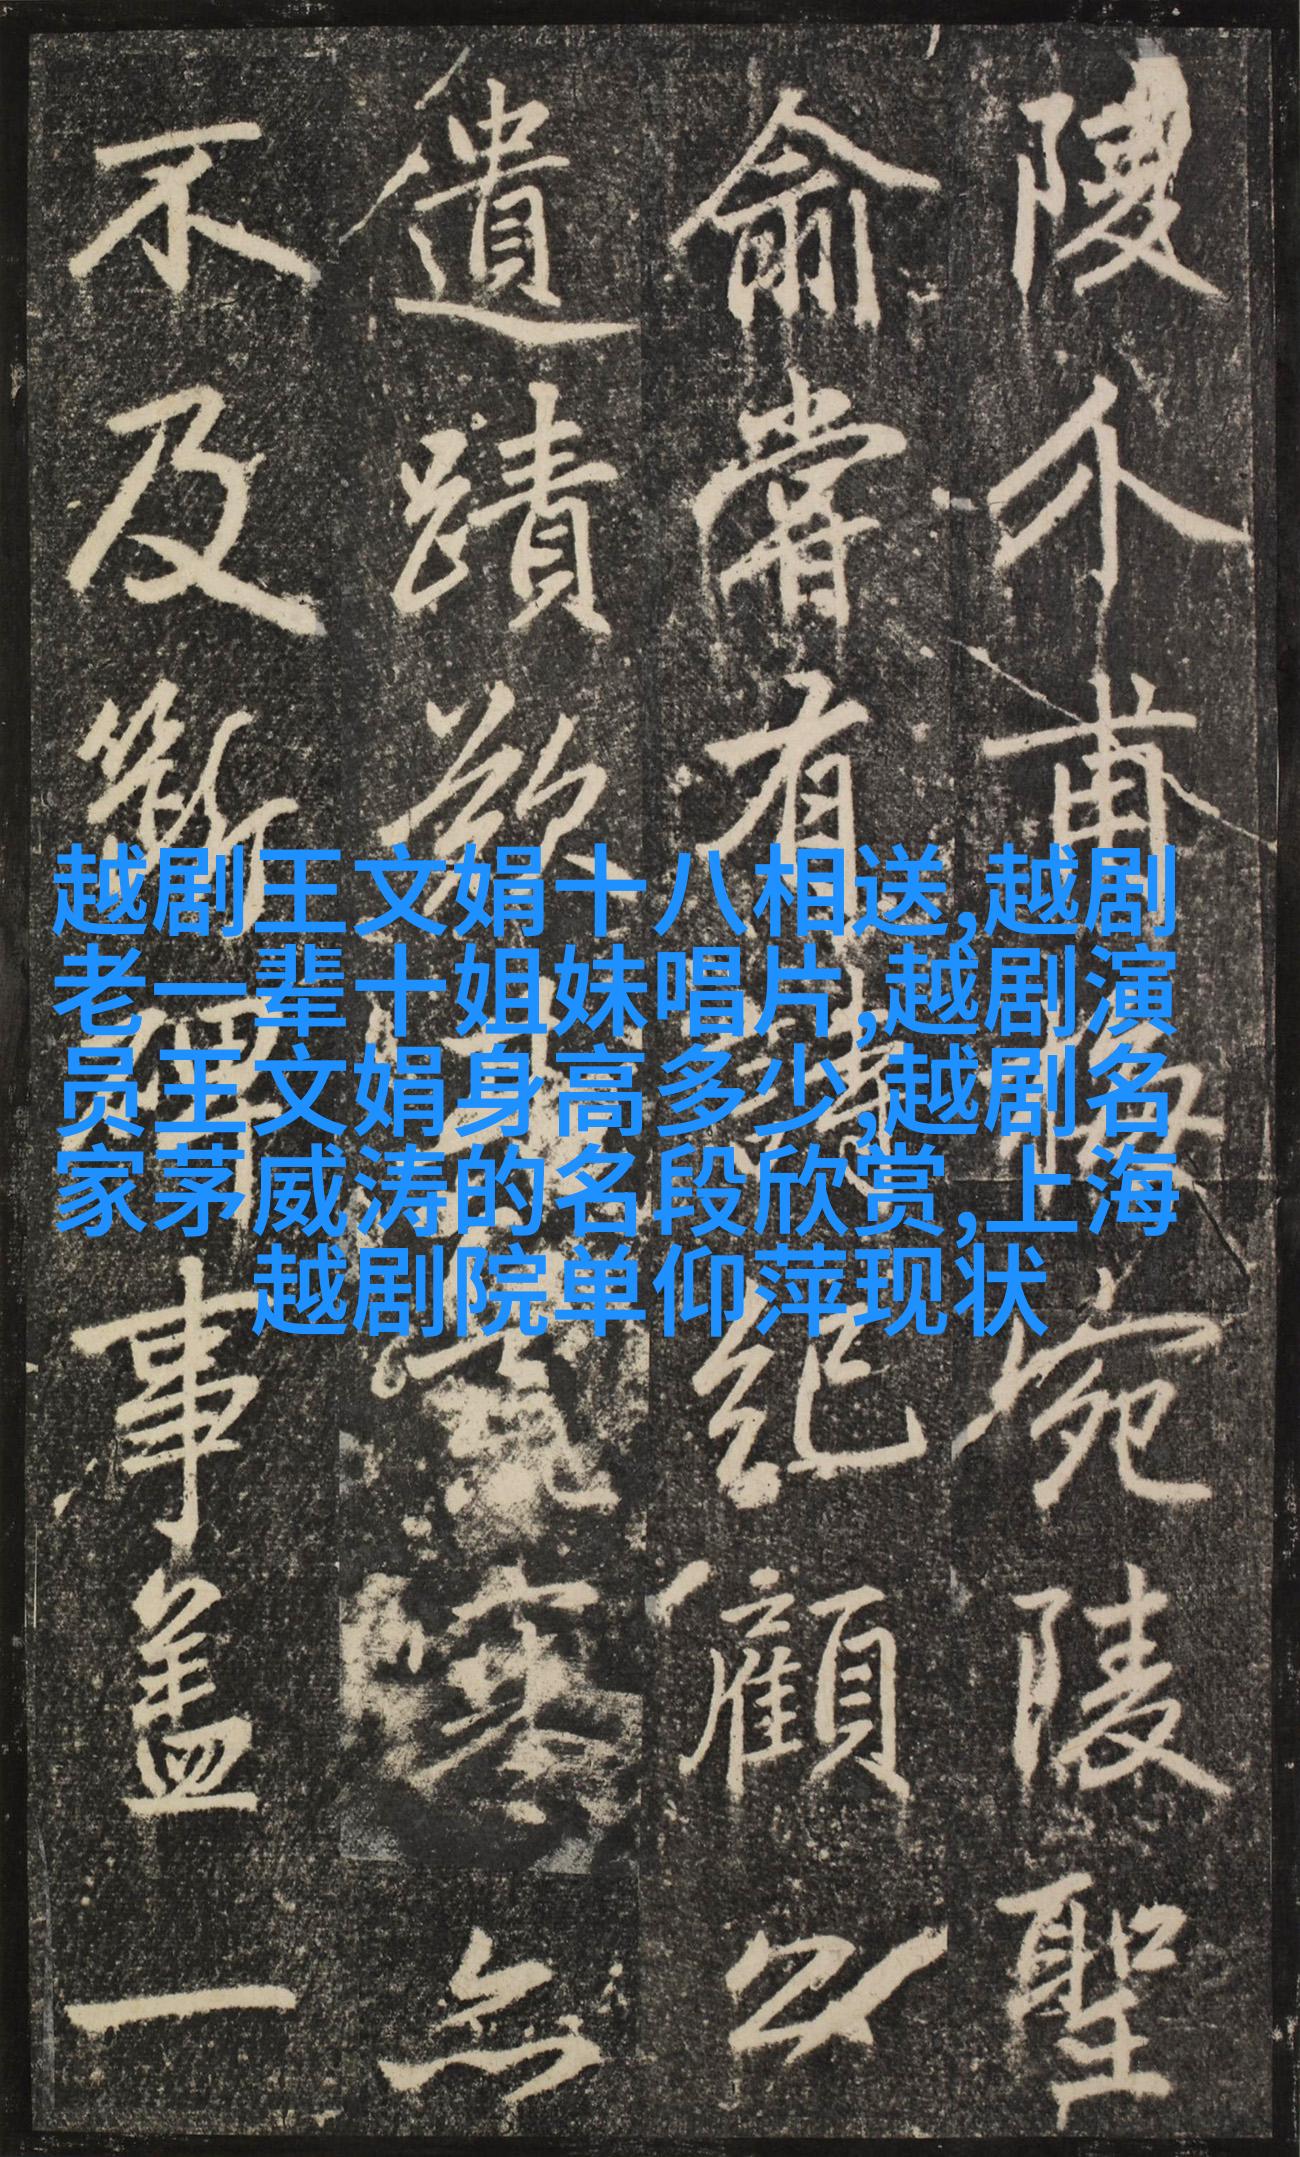 越剧王文娟十八相送,越剧
老一辈十姐妹唱片,越剧演
员王文娟身高多少,越剧名
家茅威涛的名段欣赏,上海
越剧院单仰萍现状
陵介甫梅宛陵聖
俞嘗有詩紀顧以
遺蹟寒無
不及事蓋一